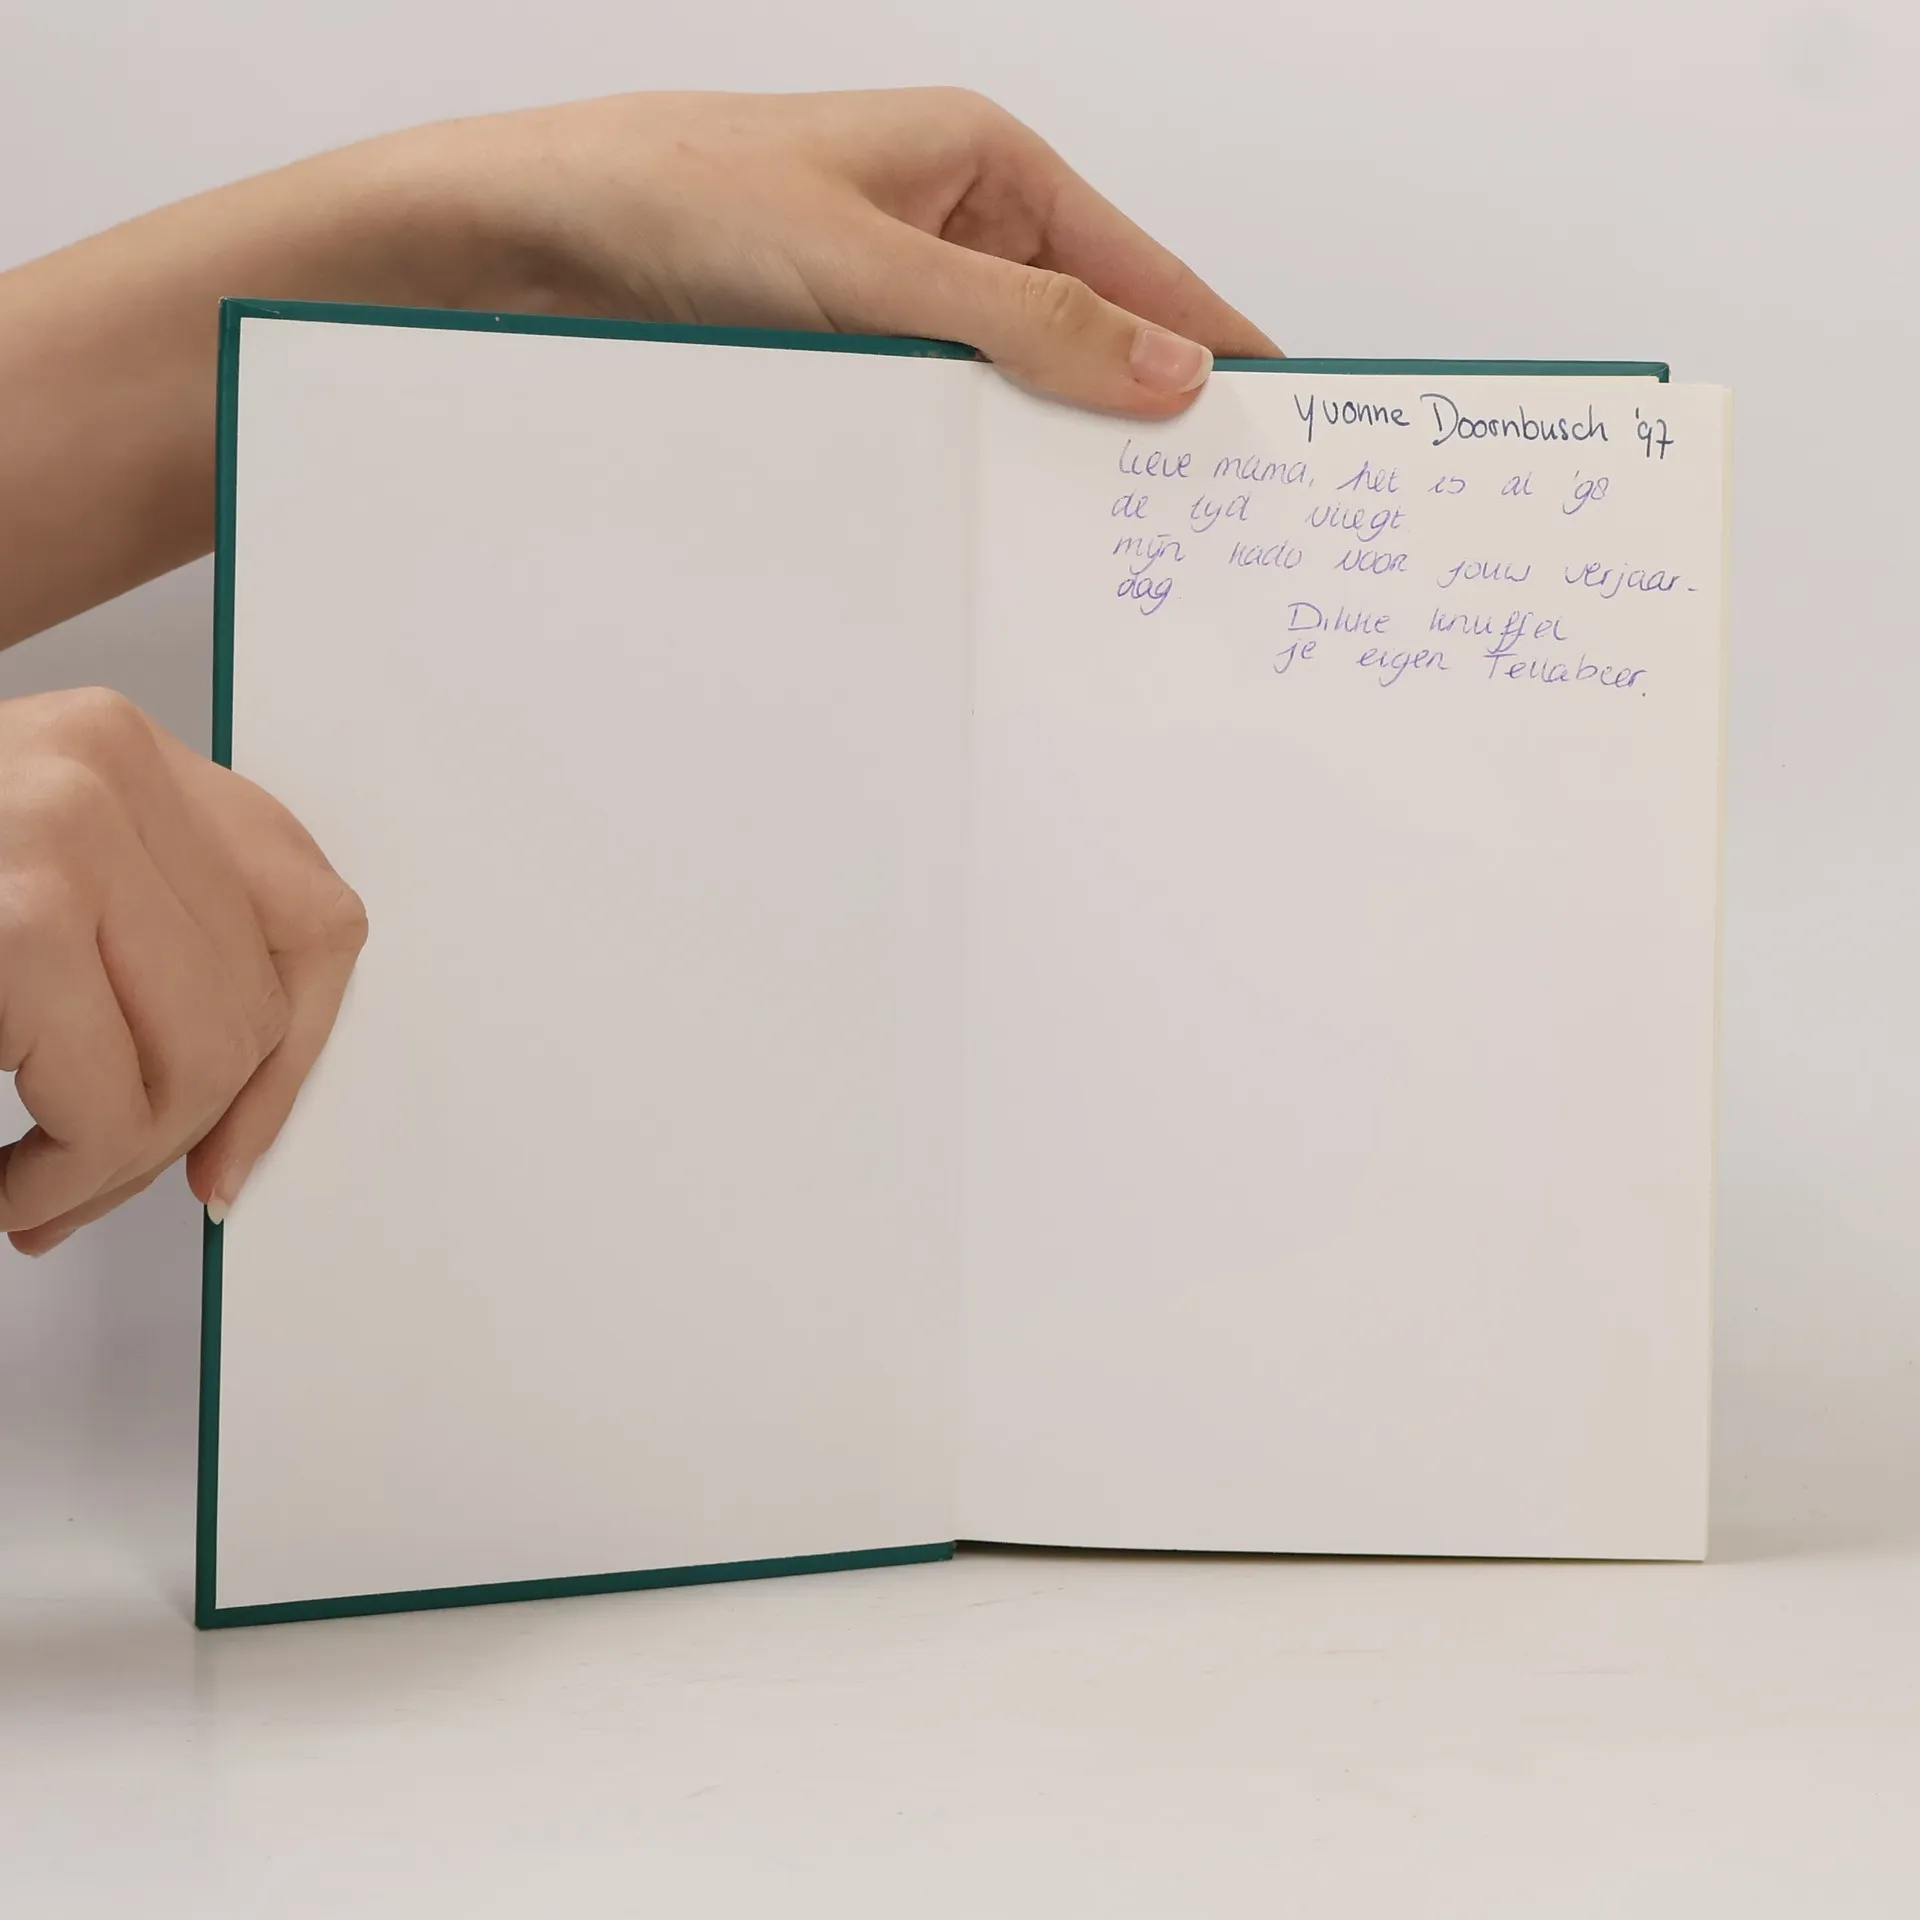 Yvonne Doornbusch '97
Lieve mama, het is al '98
de tyd vliegt
mijn kado voor jouw verjaar-
dag.
Dikke knuffel
je eigen